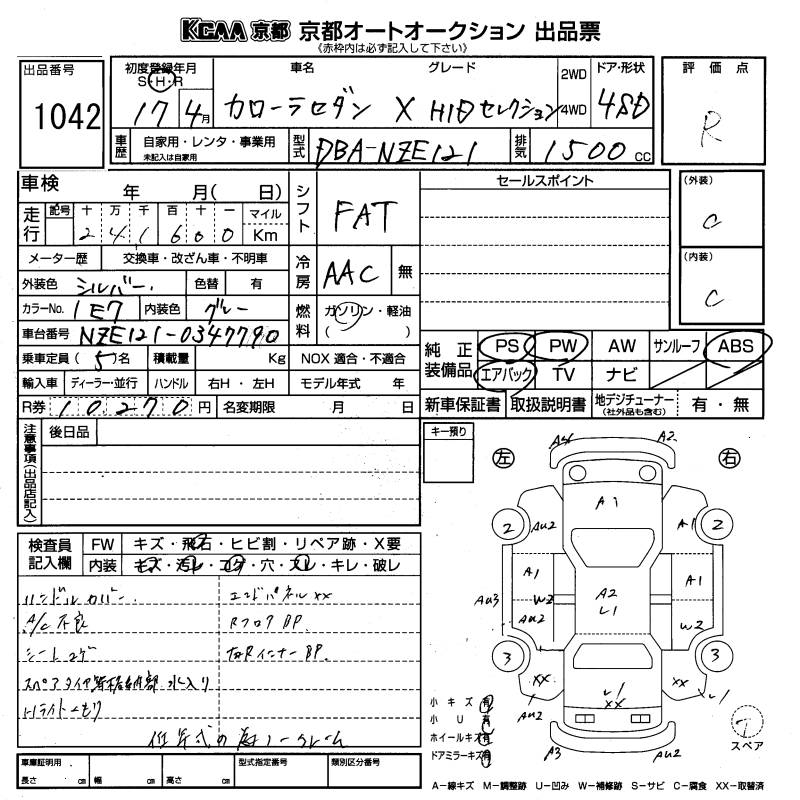 KCAA 京都 京都オートオークション 出品票
《赤枠内は必ず記入して下さい》
出品番号
1042
初度登録年月
S・H・R
17 4月
車名
グレード
カローラセダン X HIDセレクション
2WD
4WD
ドア・形状
4SD
評価点
R
車歴
自家用・レンタ・事業用
未記入は自家用
型式
DBA-NZE121
排気
1500 cc
車検 年 月( 日)
走行
記号 十 万 千 百 十 一 マイル
2 4 1 6 0 0 Km
メーター歴 交換車・改ざん車・不明車
外装色 シルバー 色替 有
カラーNo. 1E7 内装色 グレー
車台番号 NZE121-0347790
乗車定員 (5)名 積載量 Kg NOX 適合・不適合
輸入車 ディーラー・並行 ハンドル 右H・左H モデル年式 年
R券 10270円 名変期限 月 日
シフト
FAT
冷房
AAC 無
燃料
ガソリン・軽油
( )
セールスポイント
(外装)
C
(内装)
C
純正装備品
PS PW AW サンルーフ ABS
エアバック TV ナビ
新車保証書 取扱説明書 地デジチューナー(社外品も含む) 有・無
注意事項(出品店記入)
後日品
キー預り
左
右
A4 A2
A1
2 AU2 A1 2
A1 A1
AU3 W2 A2 U1
AU2 W2
3 3
XX XX U1
AU2 U1 XX
A3 AU2
検査員記入欄
FW キズ・飛石・ヒビ割・リペア跡・X要
内装 キズ・汚レ・コゲ・穴・スレ・キレ・破レ
ハンドルカバー エンドパネルXX
A/C不良 RフロアBP
シートコゲ 左RインナーBP.
スペアタイヤ格納部 水入り
Hライトくもり
低年式の為ノークレーム
小キズ 有
小U 有
ホイールキズ 有
ドアミラーキズ 有
T
スペア
車庫証明用
長さ cm 幅 cm 高さ cm
型式指定番号
類別区分番号
A—線キズ M—調整跡 U—凹み W—補修跡 S—サビ C—腐食 XX—取替済